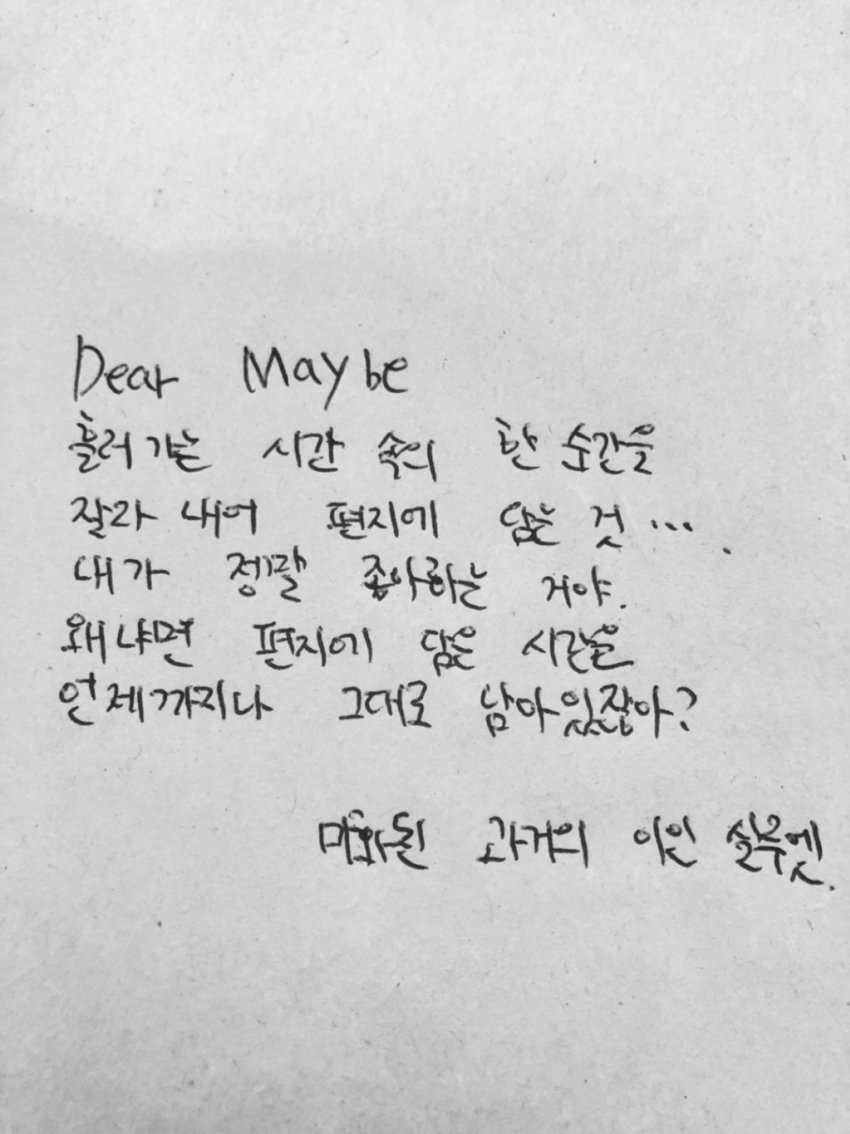 Dear Maybe
흘러가는 시간 속의 한 순간을
잘라 내어 편지에 담는 것 ....
내가 정말 좋아하는 거야.
왜냐면 편지에 담은 시간은
언제까지나 그대로 남아있잖아?
미화된 과거의 이인 실루엣.